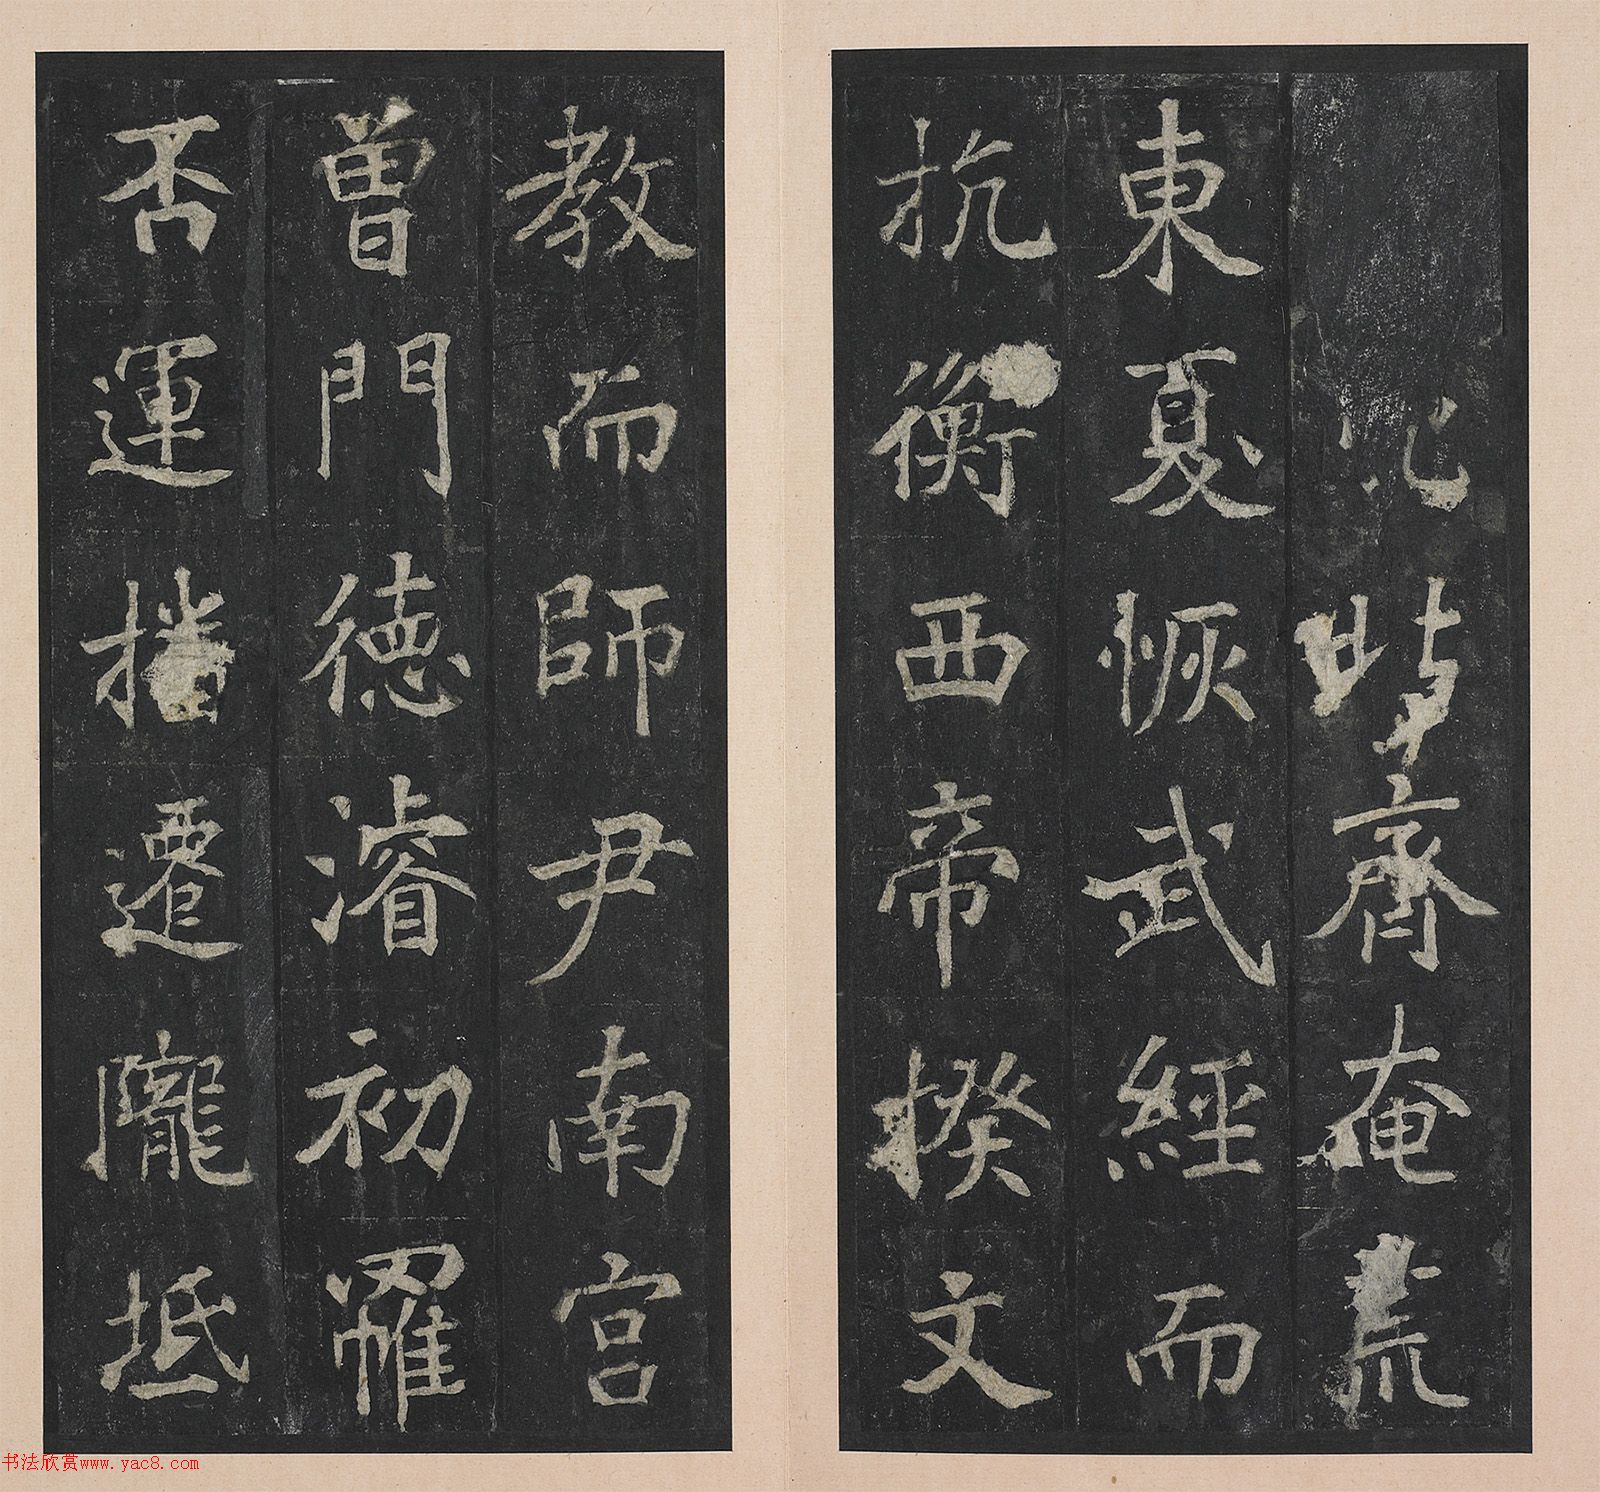 時齊奄荒
東夏恢武經而
抗衡西帝揆文
教而師尹南宮
曾門德濬初羅
否運播遷隴坻
书法欣赏www.yac8.com